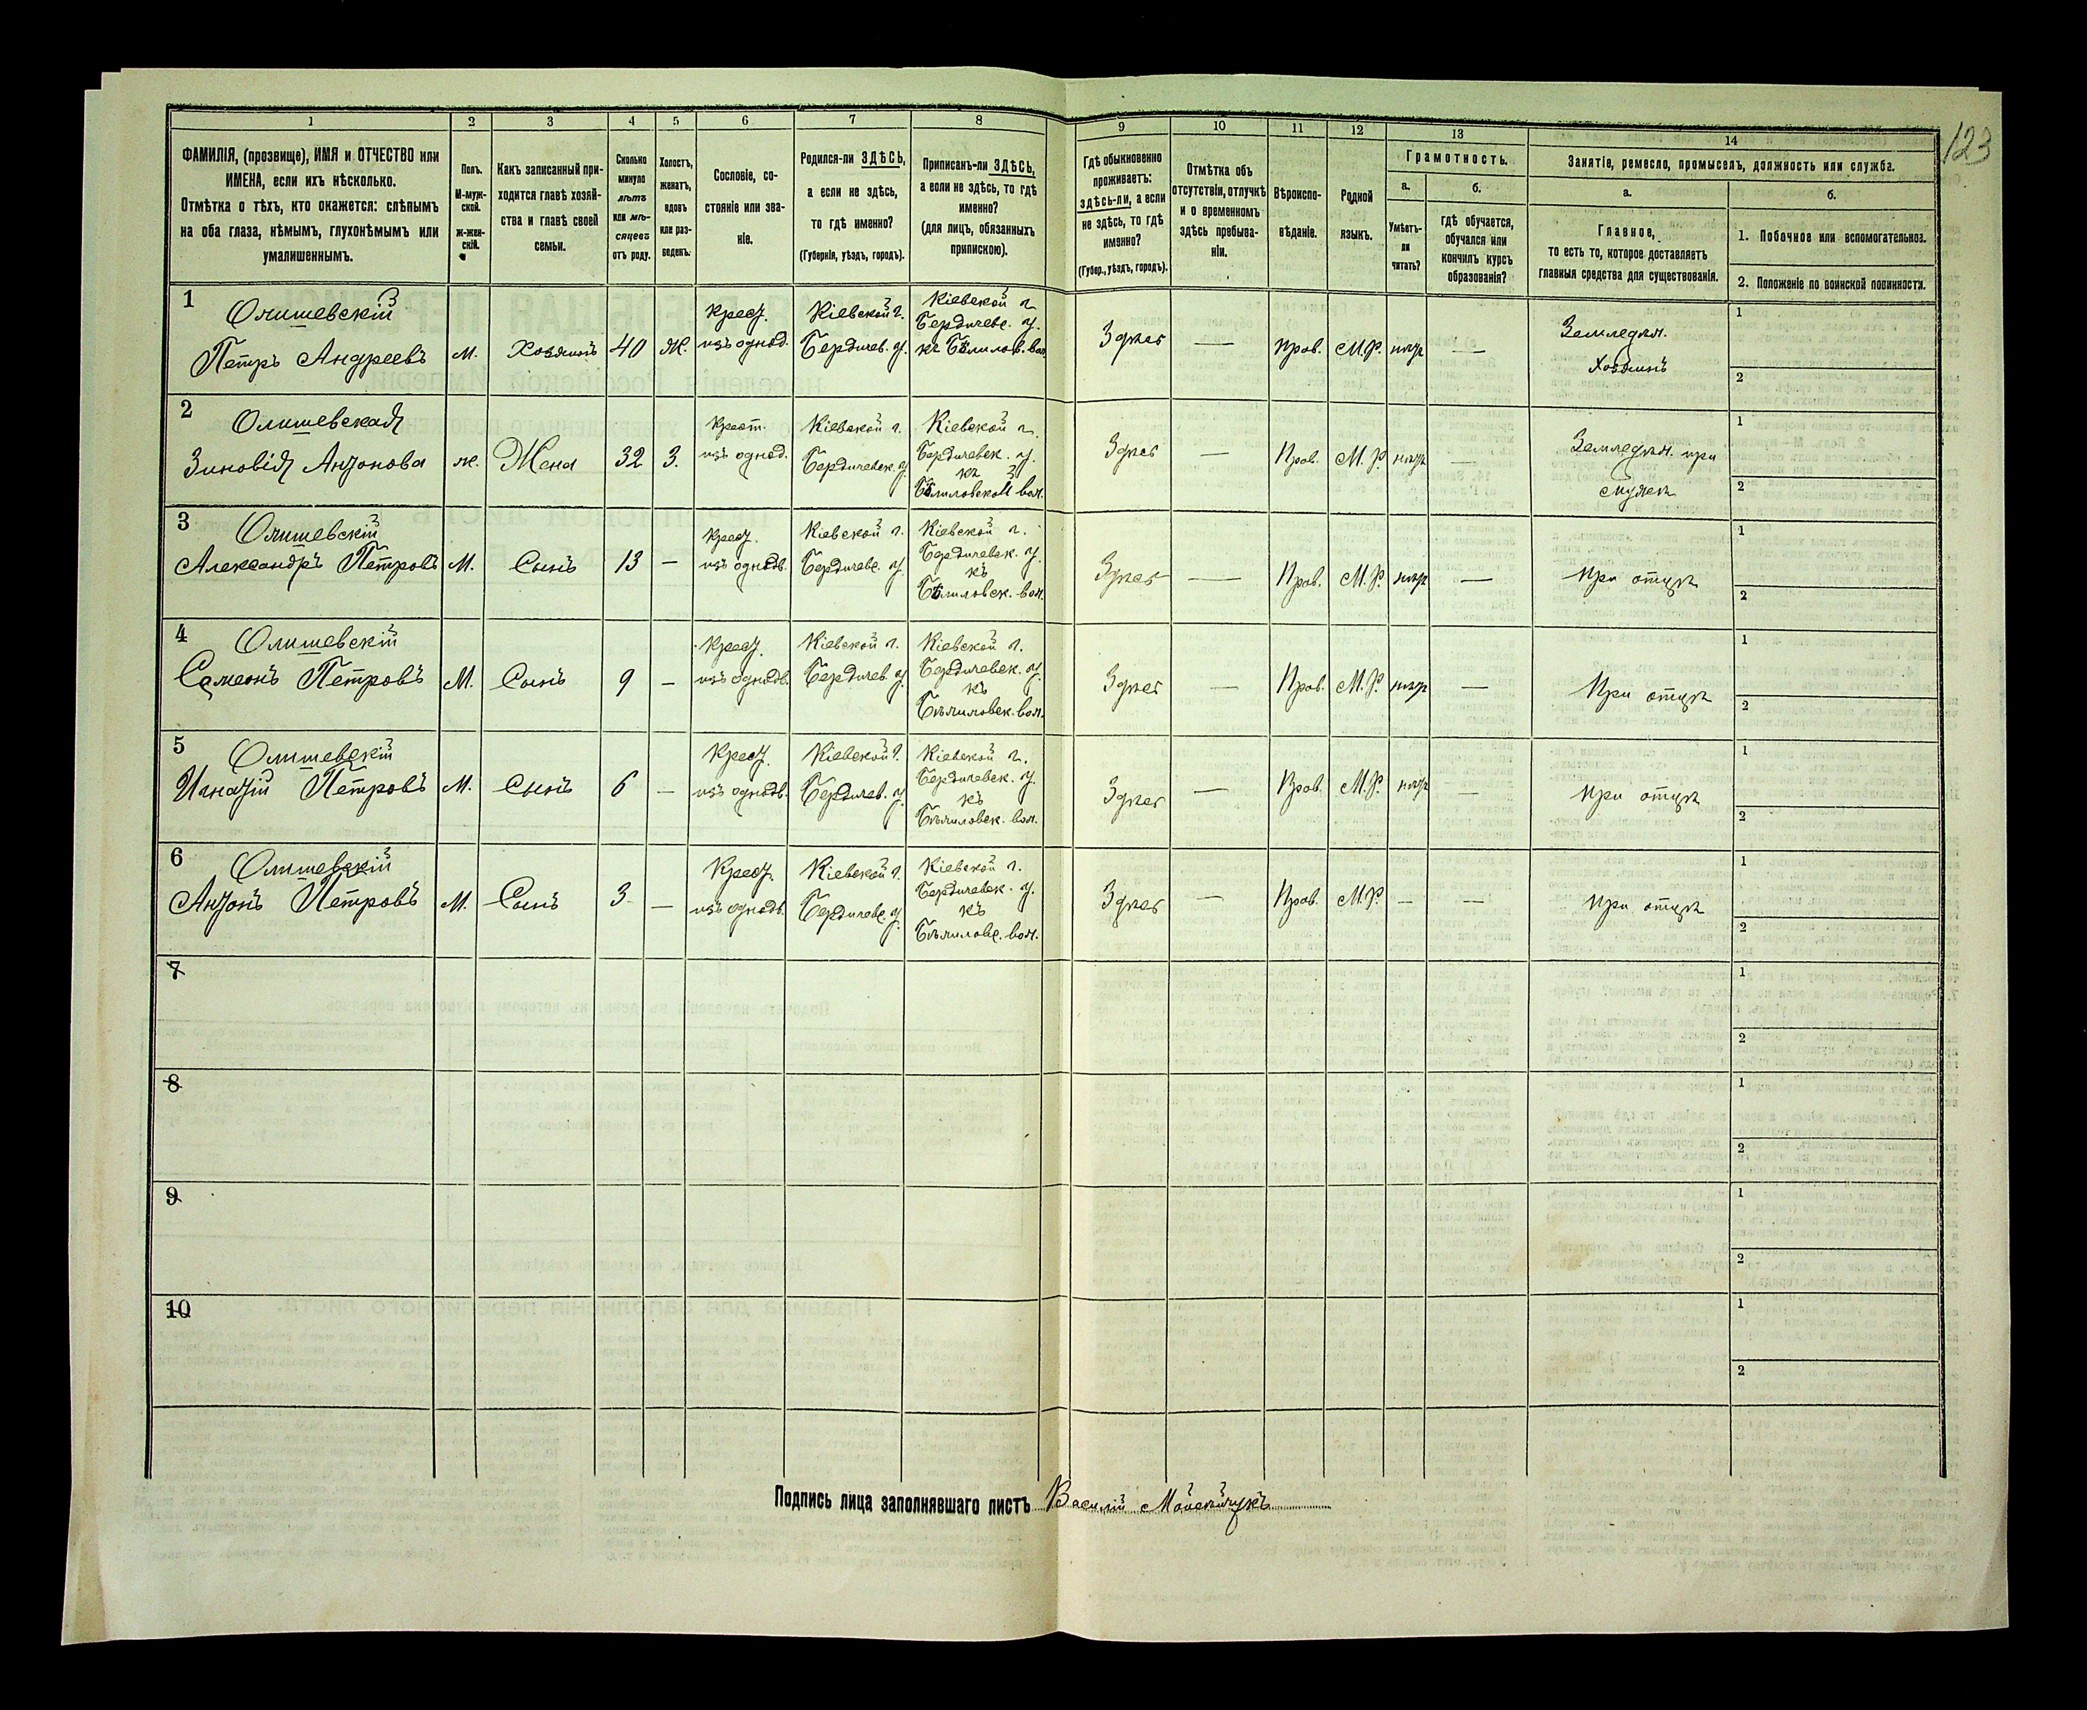 123
1 2 3 4 5 6 7 8 9 10 11 12 13 14
ФАМИЛІЯ, (прозвище), ИМЯ и ОТЧЕСТВО или
ИМЕНА, если ихъ нѣсколько.
Отмѣтка о тѣхъ, кто окажется: слѣпымъ
на оба глаза, нѣмымъ, глухонѣмымъ или
умалишеннымъ.
Полъ.
М-муж-
ской.
ж-жен-
скій.
Какъ записанный при-
ходится главѣ хозяй-
ства и главѣ своей
семьи.
Сколько
минуло
лѣтъ
или мѣ-
сяцевъ
отъ роду.
Холостъ,
женатъ,
вдовъ
или раз-
веденъ.
Сословіе, со-
стояніе или зва-
ніе.
Родился-ли ЗДѢСЬ,
а если не здѣсь,
то гдѣ именно?
(Губернія, уѣздъ, городъ).
Приписанъ-ли ЗДѢСЬ,
а если не здѣсь, то гдѣ
именно?
(для лицъ, обязанныхъ
припискою).
Гдѣ обыкновенно
проживаетъ:
здѣсь-ли, а если
не здѣсь, то гдѣ
именно?
(Губер., уѣздъ, городъ).
Отмѣтка объ
отсутствіи, отлучкѣ
и о временномъ
здѣсь пребыва-
ніи.
Вѣроиспо-
вѣданіе.
Родной
языкъ.
Грамотность.
а.
Умѣетъ-
ли
читать?
б.
гдѣ обучается,
обучался или
кончилъ курсъ
образованія?
Занятіе, ремесло, промыселъ, должность или служба.
а.
Главное,
то есть то, которое доставляетъ
главныя средства для существованія.
б.
1. Побочное или вспомогательное.
2. Положеніе по воинской повинности.
1
Олишевскій
Петръ Андреевъ
м.
Хозяинъ
40
Ж.
Крест.
изъ однод.
Кіевской г.
Бердичев. у.
Кіевской г.
Бердичевс. у.
къ Бѣлилов. вол.
Здѣсь
—
Прав.
М.Р.
нѣтъ
—
Земледѣл.
Хозяинъ
1
2
2
Олишевская
Зиновія Антонова
ж.
Жена
32
З.
Крест.
изъ однод.
Кіевской г.
Бердичевск. у.
Кіевской г.
Бердичевск. у.
къ
Бѣлиловской вол.
Здѣсь
—
Прав.
М.Р.
нѣтъ
—
Земледѣл. при
мужѣ
1
2
3
Олишевскій
Александръ Петровъ
М.
Сынъ
13
—
Крест.
изъ однодв.
Кіевской г.
Бердичевс. у.
Кіевской г.
Бердичевск. у.
къ
Бѣлиловск. вол.
Здѣсь
—
Прав.
М.Р.
нѣтъ
—
При отцѣ
1
2
4
Олишевскій
Семеонъ Петровъ
М.
Сынъ
9
—
Крест.
изъ однодв.
Кіевской г.
Бердичев у.
Кіевской г.
Бердичевск. у.
къ
Бѣлиловск. вол.
Здѣсь
—
Прав.
М.Р.
нѣтъ
—
При отцѣ
1
2
5
Олишевскій
Игнатій Петровъ
М.
Сынъ
6
—
Крест.
изъ однодв.
Кіевской г.
Бердичев. у.
Кіевской г.
Бердичевск. у.
къ
Бѣлиловск. вол.
Здѣсь
—
Прав.
М.Р.
нѣтъ
—
При отцѣ
1
2
6
Олишевскій
Антонъ Петровъ
М.
Сынъ
3
—
Крест.
изъ однодв.
Кіевской г.
Бердичевс. у.
Кіевской г.
Бердичевск. у.
къ
Бѣлиловс. вол.
Здѣсь
—
Прав.
М.Р.
—
—
При отцѣ
1
2
7
1
2
8
1
2
9
1
2
10
1
2
Подпись лица заполнявшаго листъ Василій